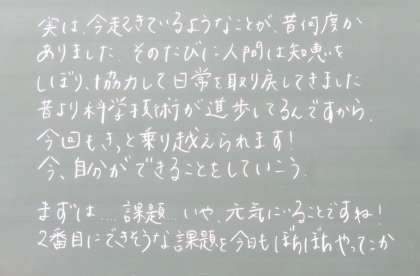 実は、今起きているようなことが、昔何度か
ありました。そのたびに人間は知恵を
しぼり、協力して日常を取り戻してきました
昔より科学技術が進歩してるんですから、
今回もきっと乗り越えられます！
今、自分ができることをしていこう。
まずは....課題...いや、元気にいることですね！
2番目にできそうな課題を今日もぼちぼちやってこか